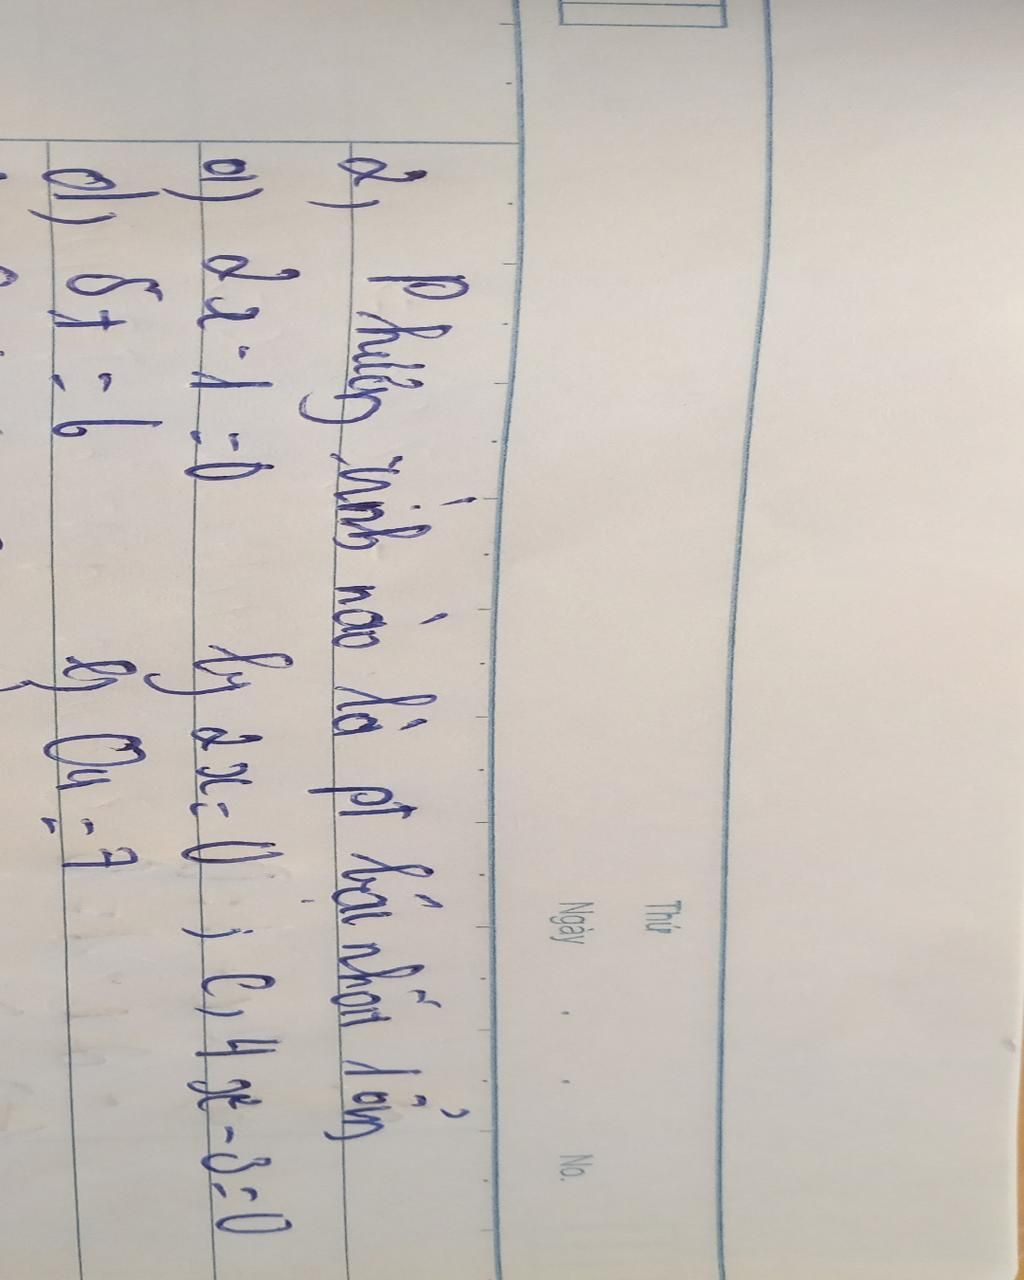 Thứ
Ngày . . No.
2, Phương trình nào là pt bậc nhất 1 ẩn
a) 2x-1=0 b, 2x=0 ; c, 4x-3=0
d, 8t=6 0y=7